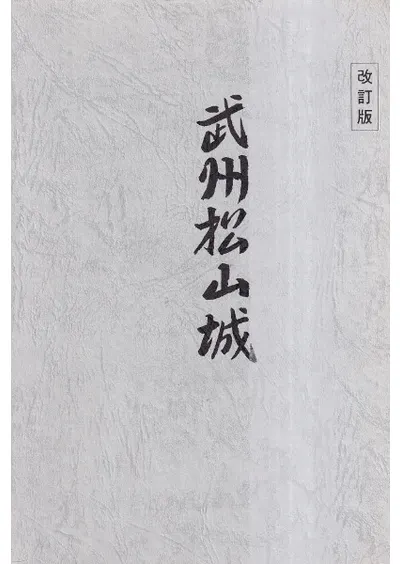 改訂版
武州松山城